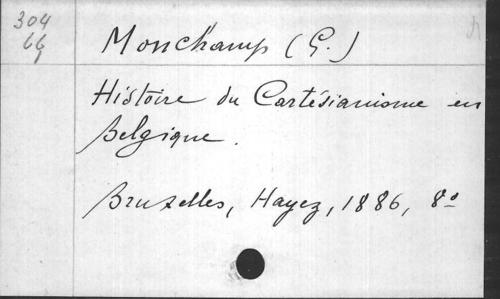 304
66
Monchamp (G.)
Histoire du Cartésianisme en
Belgique.
Bruxelles, Hayez, 1886, 8º